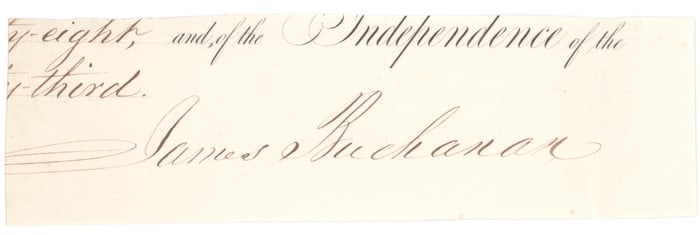 y-eight, and, of the Independence of the
y-third.
James Buchanan